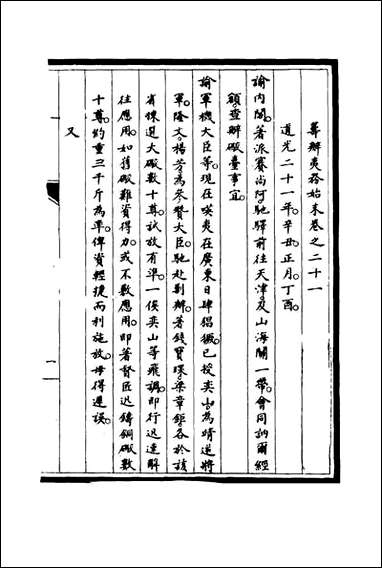 籌辦夷務始末卷之二十一
道光二十一年。辛丑正月。丁酉。
諭內閣。著派賽尚阿馳驛前往天津。及山海關一帶。會同訥爾經
額。查辦礮臺事宜。
諭軍機大臣等。現在𠸄夷在廣東日肆猖獗。已授奕山。為靖逆將
軍。隆文。楊芳。為參贊大臣。馳赴剿辦。著錢寶琛。梁章鉅。各於該
省。揀選大礮數十尊。試放有準。一俟奕山等飛調。即行迅速解
往應用。如舊礮難資得力。或不敷應用。即著督匠迅鑄銅礮數
十尊。約重三千斤為準。俾資輕捷而利施放。毋得遲誤。
又
一